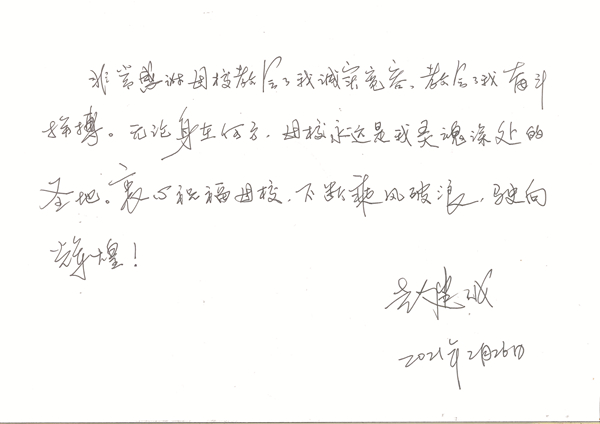 非常感谢母校教会了我诚实宽容,教会了我奋斗
拼搏。无论身在何方,母校永远是我灵魂深处的
圣地。衷心祝福母校,不断乘风破浪,驶向
辉煌!
2021年2月26日